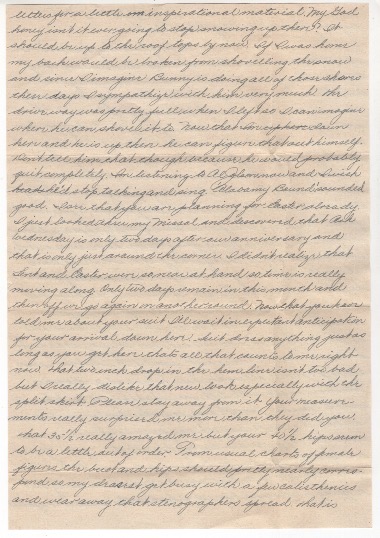 letters for a little inspirational material. My God
honey isn't it ever going to stop snowing up there? It
should be up to the roof tops by now. If I was home
my back would be broken from shovelling the snow
and since I imagine Bunny is doing all of those chores
these days I sympathize with him very much. The
drive way was pretty full when I left so I can imagine
where he can shovel it to. Now that I'm down
here and he is up there he can figure that out himself.
Don't tell him that though because he would probably
quit completely. I'm listening to Al Jolson now and I wish
he'd stop talking and sing. "Alabamy Bound" sounded
good. I see that you are planning for Easter already.
I just looked thru my Missal and discovered that Ash
Wednesday is only two days after our anniversary and
that is only just around the corner. I didn't realize that
Lent and Easter were so near at hand so time is really
moving along. Only two days remain in this month and
then off we go again on another round. Now that you have
told me about your suit I'll wait in expectant anticipation
for your arrival down here! but dress anything just as
long as you get here that's all that counts to me right
now. That two inch drop in the hem line isn't too bad
but I really dislike that new look especially with the
split skirt. Please stay away from it. Your measure-
ments really surprised me more than they did you.
That 35½ really amazed me but your hips seem
to be a little out of order. From usual charts of female
figures the bust and hips should pretty nearly corres-
pond so my dearest get busy with a few calisthenics
and wear away that stenographers spread. What is